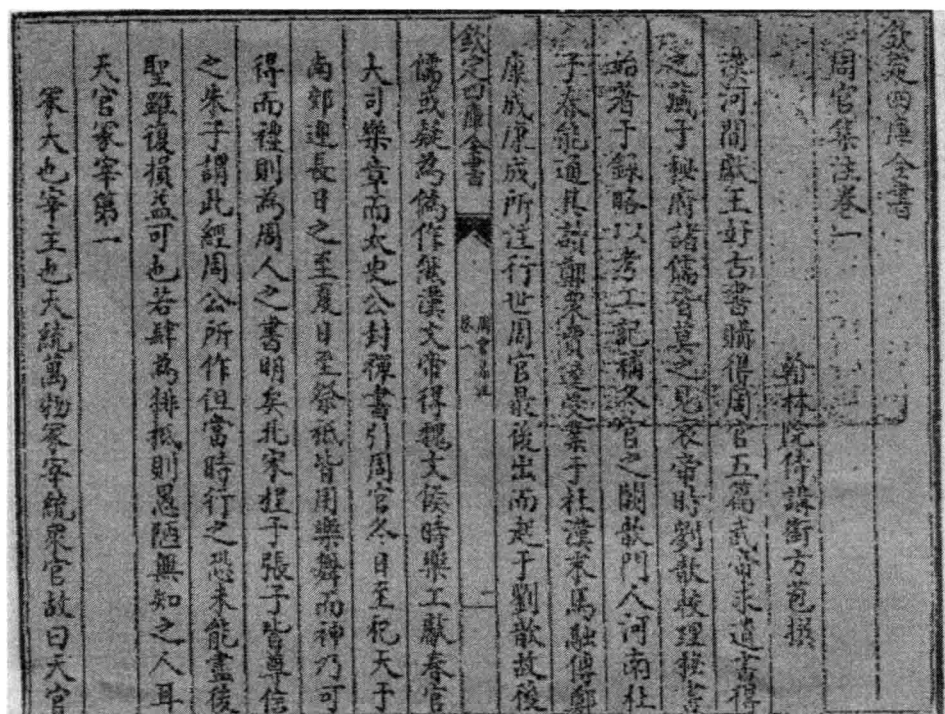 欽定四庫全書
周官集注卷一
翰林院侍講銜方苞撰
漢河間獻王好古書購得周官五篇武帝求遺書得
之藏于秘府諸儒皆莫之見哀帝時劉歆校理秘書
始著于錄略以考工記補冬官之闕歆門人河南杜
子春能通其讀鄭眾賈逵受業于杜漢末馬融傳鄭
康成康成所注行世周官最後出而起于劉歆故後
欽定四庫全書
周官集注
卷一
一
儒或疑為偽作然漢文帝得魏文侯時樂工獻春官
大司樂章而太史公封禪書引周官冬日至祀天于
南郊迎長日之至夏日至祭祗皆用樂舞而神乃可
得而禮則為周人之書明矣北宋程子張子皆尊信
之朱子謂此經周公所作但當時行之恐未能盡後
聖雖復損益可也若肆為排抵則愚陋無知之人耳
天官冢宰第一
冢大也宰主也天統萬物冢宰統眾官故曰天官